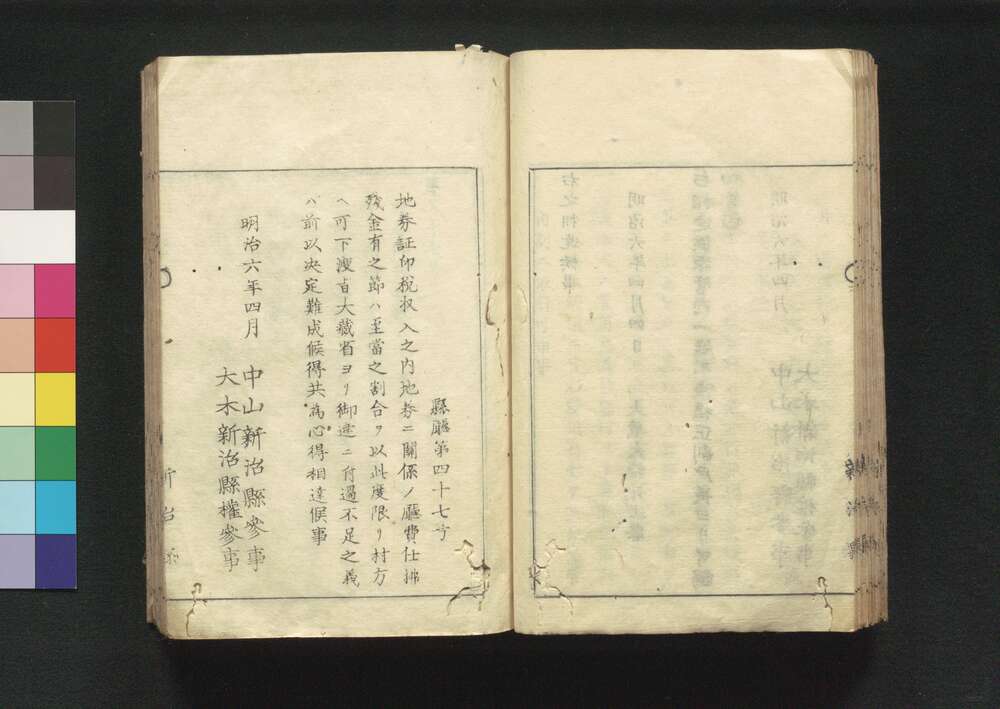 縣廳第四十七号
地券証印税収入之内地券ニ關係ノ廳費仕拂
残金有之節ハ至當之割合ヲ以此度限リ村方
ヘ可下渡旨大藏省ヨリ御達ニ付過不足之義
ハ前以決定難成候得共為心得相達候事
明治六年四月
中山新治縣參事
大木新治縣權參事